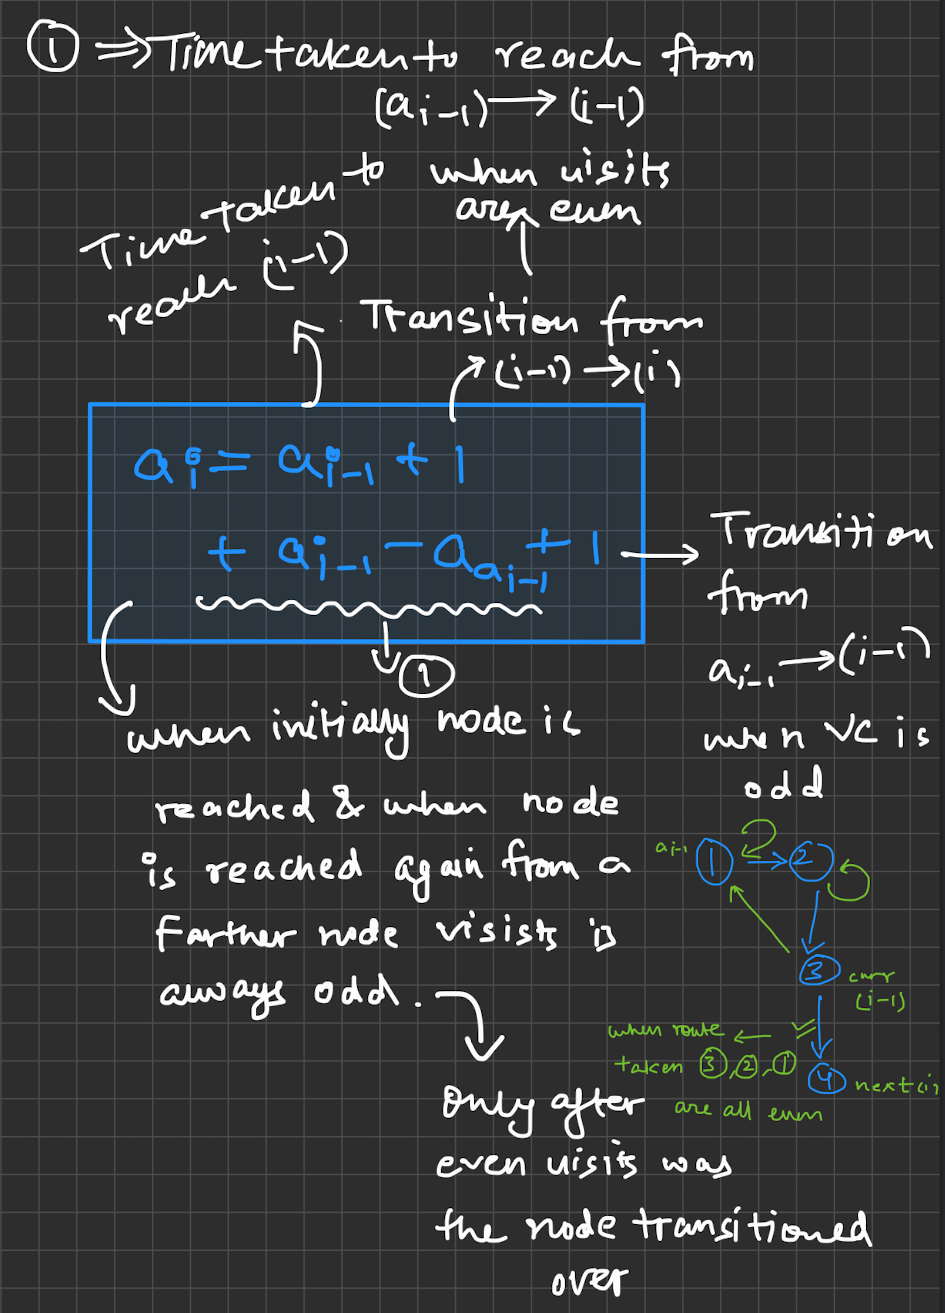 ① ⇒ Time taken to reach from
(a i-1) → (i-1)
when visits
are even
Time taken to
reach (i-1)
Transition from
(i-1) → (i)
aᵢ = aᵢ₋₁ + 1
+ aᵢ₋₁ - a_{aᵢ₋₁} + 1
①
Transition
from
aᵢ₋₁ → (i-1)
when VC is
odd
when initially node is
reached & when node
is reached again from a
Farther node visists is
always odd.
Only after
even visits was
the node transitioned
over
aᵢ₋₁ ① ②
③ curr
(i-1)
when route
taken ③, ②, ①
are all even
④ next(i)